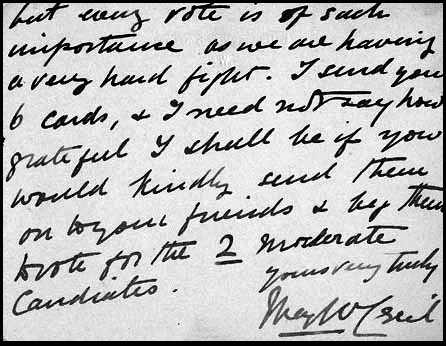 but every vote is of such
importance as we are having
a very hard fight. I send you
6 cards, & I need not say how
grateful I shall be if you
would kindly send them
on to your friends & beg them
to vote for the 2 moderate
Candiates.
yours very truly
Cecil